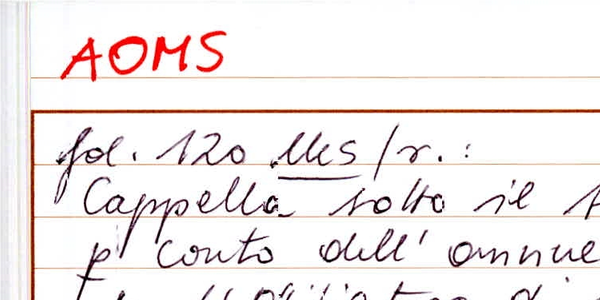 AOMS
fol. 120 Ms/r.:
Cappella sotto il
p conto dell' annue